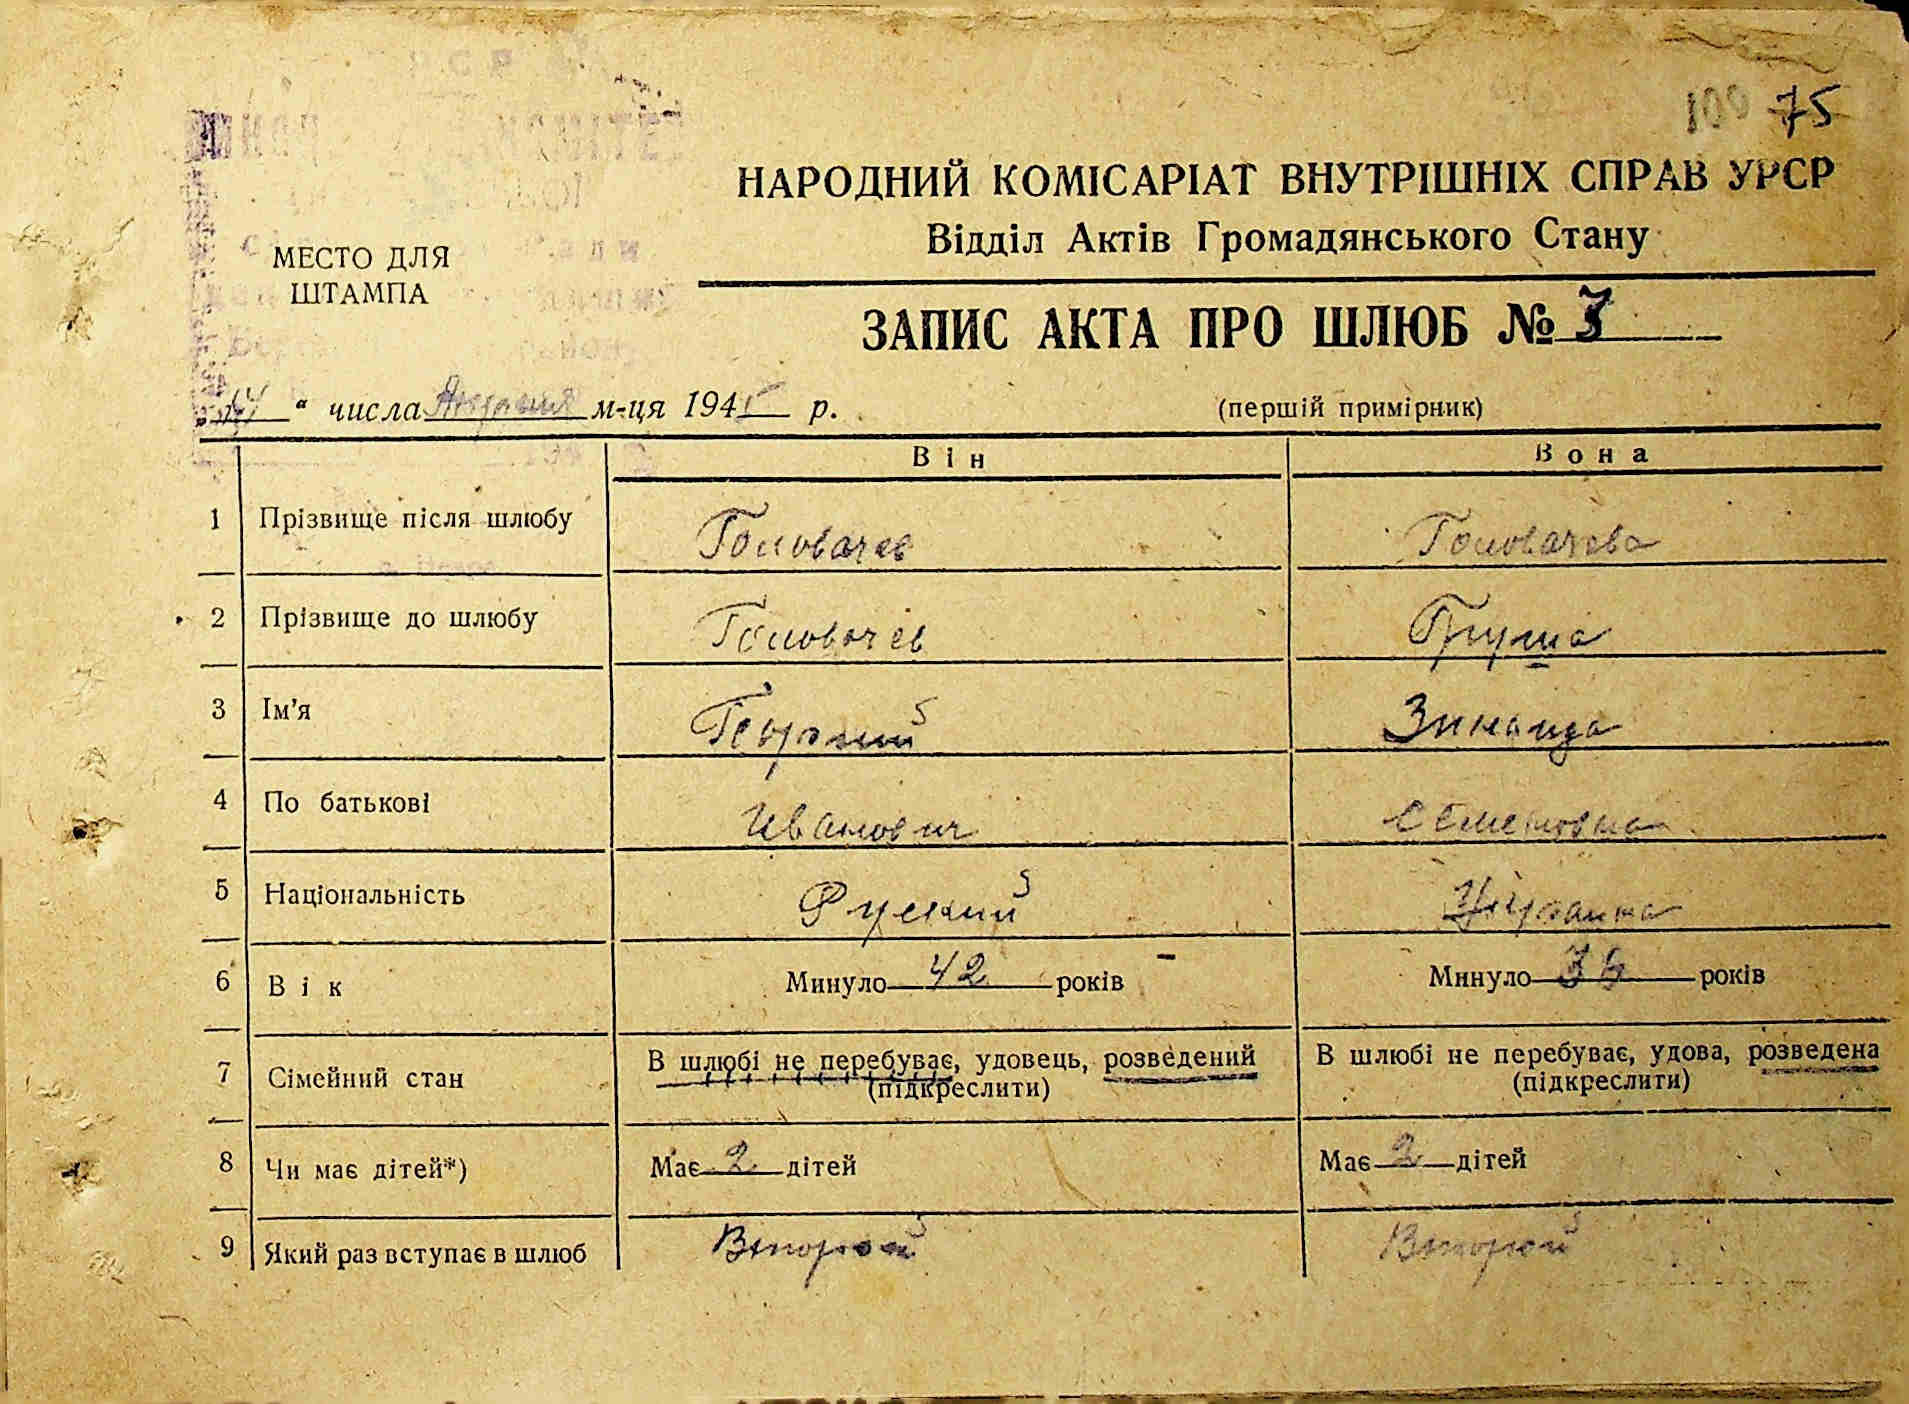 100 75
НАРОДНИЙ КОМІСАРІАТ ВНУТРІШНІХ СПРАВ УРСР
Відділ Актів Громадянського Стану
МЕСТО ДЛЯ
ШТАМПА
ЗАПИС АКТА ПРО ШЛЮБ № 3
„14“ числа м-ця 1945 р.
(першій примірник)
Він Вона
1 Прізвище після шлюбу Головачев Головачева
2 Прізвище до шлюбу Головачев Груша
3 Ім'я Георгий Зинаида
4 По батькові Иванович Семеновна
5 Національність Руский Украинка
6 Вік Минуло 42 років Минуло 36 років
7 Сімейний стан В шлюбі не перебуває, удовець, розведений В шлюбі не перебуває, удова, розведена
(підкреслити) (підкреслити)
8 Чи має дітей*) Має 2 дітей Має 2 дітей
9 Який раз вступає в шлюб Второй Второй